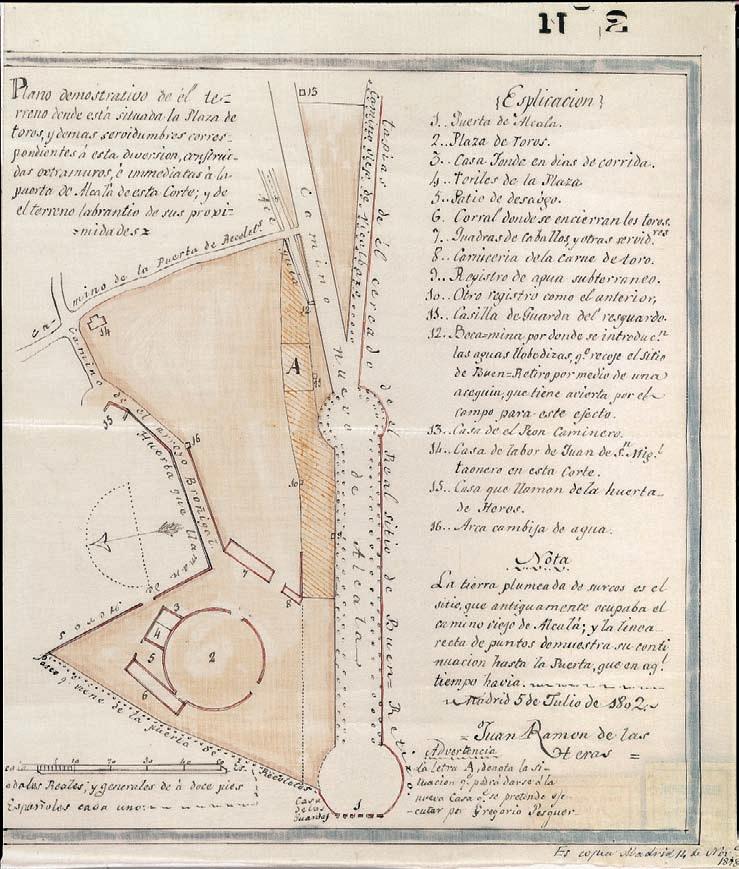 Nº 2
Plano demostrativo de él te-
rreno donde está situada la Plaza de
toros, y demas servidumbres corres-
pondientes á esta diversion, construi-
das extramuros, é immediatas á la
puerta de Alcalá de esta Corte; y de
el terreno labrantio de sus proxi-
=midades=
{Esplicacion}
1.. Puerta de Alcala.
2.. Plaza de Toros.
3.. Casa Fonde en dias de corrida.
4.. Toriles de la Plaza
5.. Patio de desaogo.
6.. Corral donde se encierran los toros.
7.. Quadras de caballos, y otras servid.res
8.. Carniceria de la carne de toro.
9.. Registro de agua subterraneo.
10.. Otro registro como el anterior,
11.. Casilla de Guarda del resguardo.
12.. Boca=mina, por donde se introduc.n
las aguas llobedizas, q.e recoje el sitio
de Buen=Retiro por medio de una
acequia, que tiene avierta por el
campo para este efecto.
13.. Casa de el Peon Caminero.
14.. Casa de labor de Juan de S.n Mig.l
taonero en esta Corte.
15.. Casa que llaman de la huerta
de Heros.
16.. Arca cambija de agua.
Nota
La tierra plumeada de surcos es el
sitio, que antiguamente ocupaba el
camino viejo de Alcalá; y la linea
recta de puntos demuestra su conti
nuacion hasta la Puerta, que en aq.l
tiempo havia.
Madrid 5 de Julio de 1802.
= Juan Ramon de las
Heras =
Advertencia
La letra A, denota la si-
tuacion q.e podrá darse á la
nueva Casa q.e se pretende eje-
cutar por Gregorio Pesquer
Es copia Madrid 14 de Nov.e
camino de la Puerta de Recolet.s
Camino nuevo de Alcala
tapias de él cercado de el Real sitio de Buen Retiro
Camino de el arroyo Broñigal
Huerta que llaman de
Paseo q.e viene de la puerta de
Recoletos
Casa
de los
Guardas
13
14
15
16
12
11
A
10
7
8
3
4
5
6
2
1
10 20 30 40 50
odales Reales; y generales de á doce pies
Españoles cada uno: